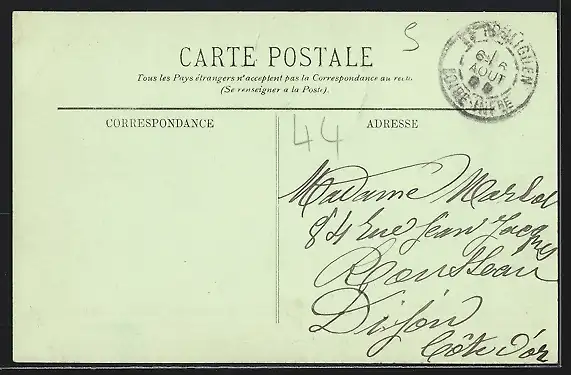 5
LE POULIGUEN
AOUT
LOIRE-INFRE
CARTE POSTALE
Tous les Pays étrangers n'acceptent pas la Correspondance au recto.
(Se renseigner à la Poste).
CORRESPONDANCE
ADRESSE
44
Madame
84 rue Jean Jacques
Rousseau
Dijon
Côte d'or